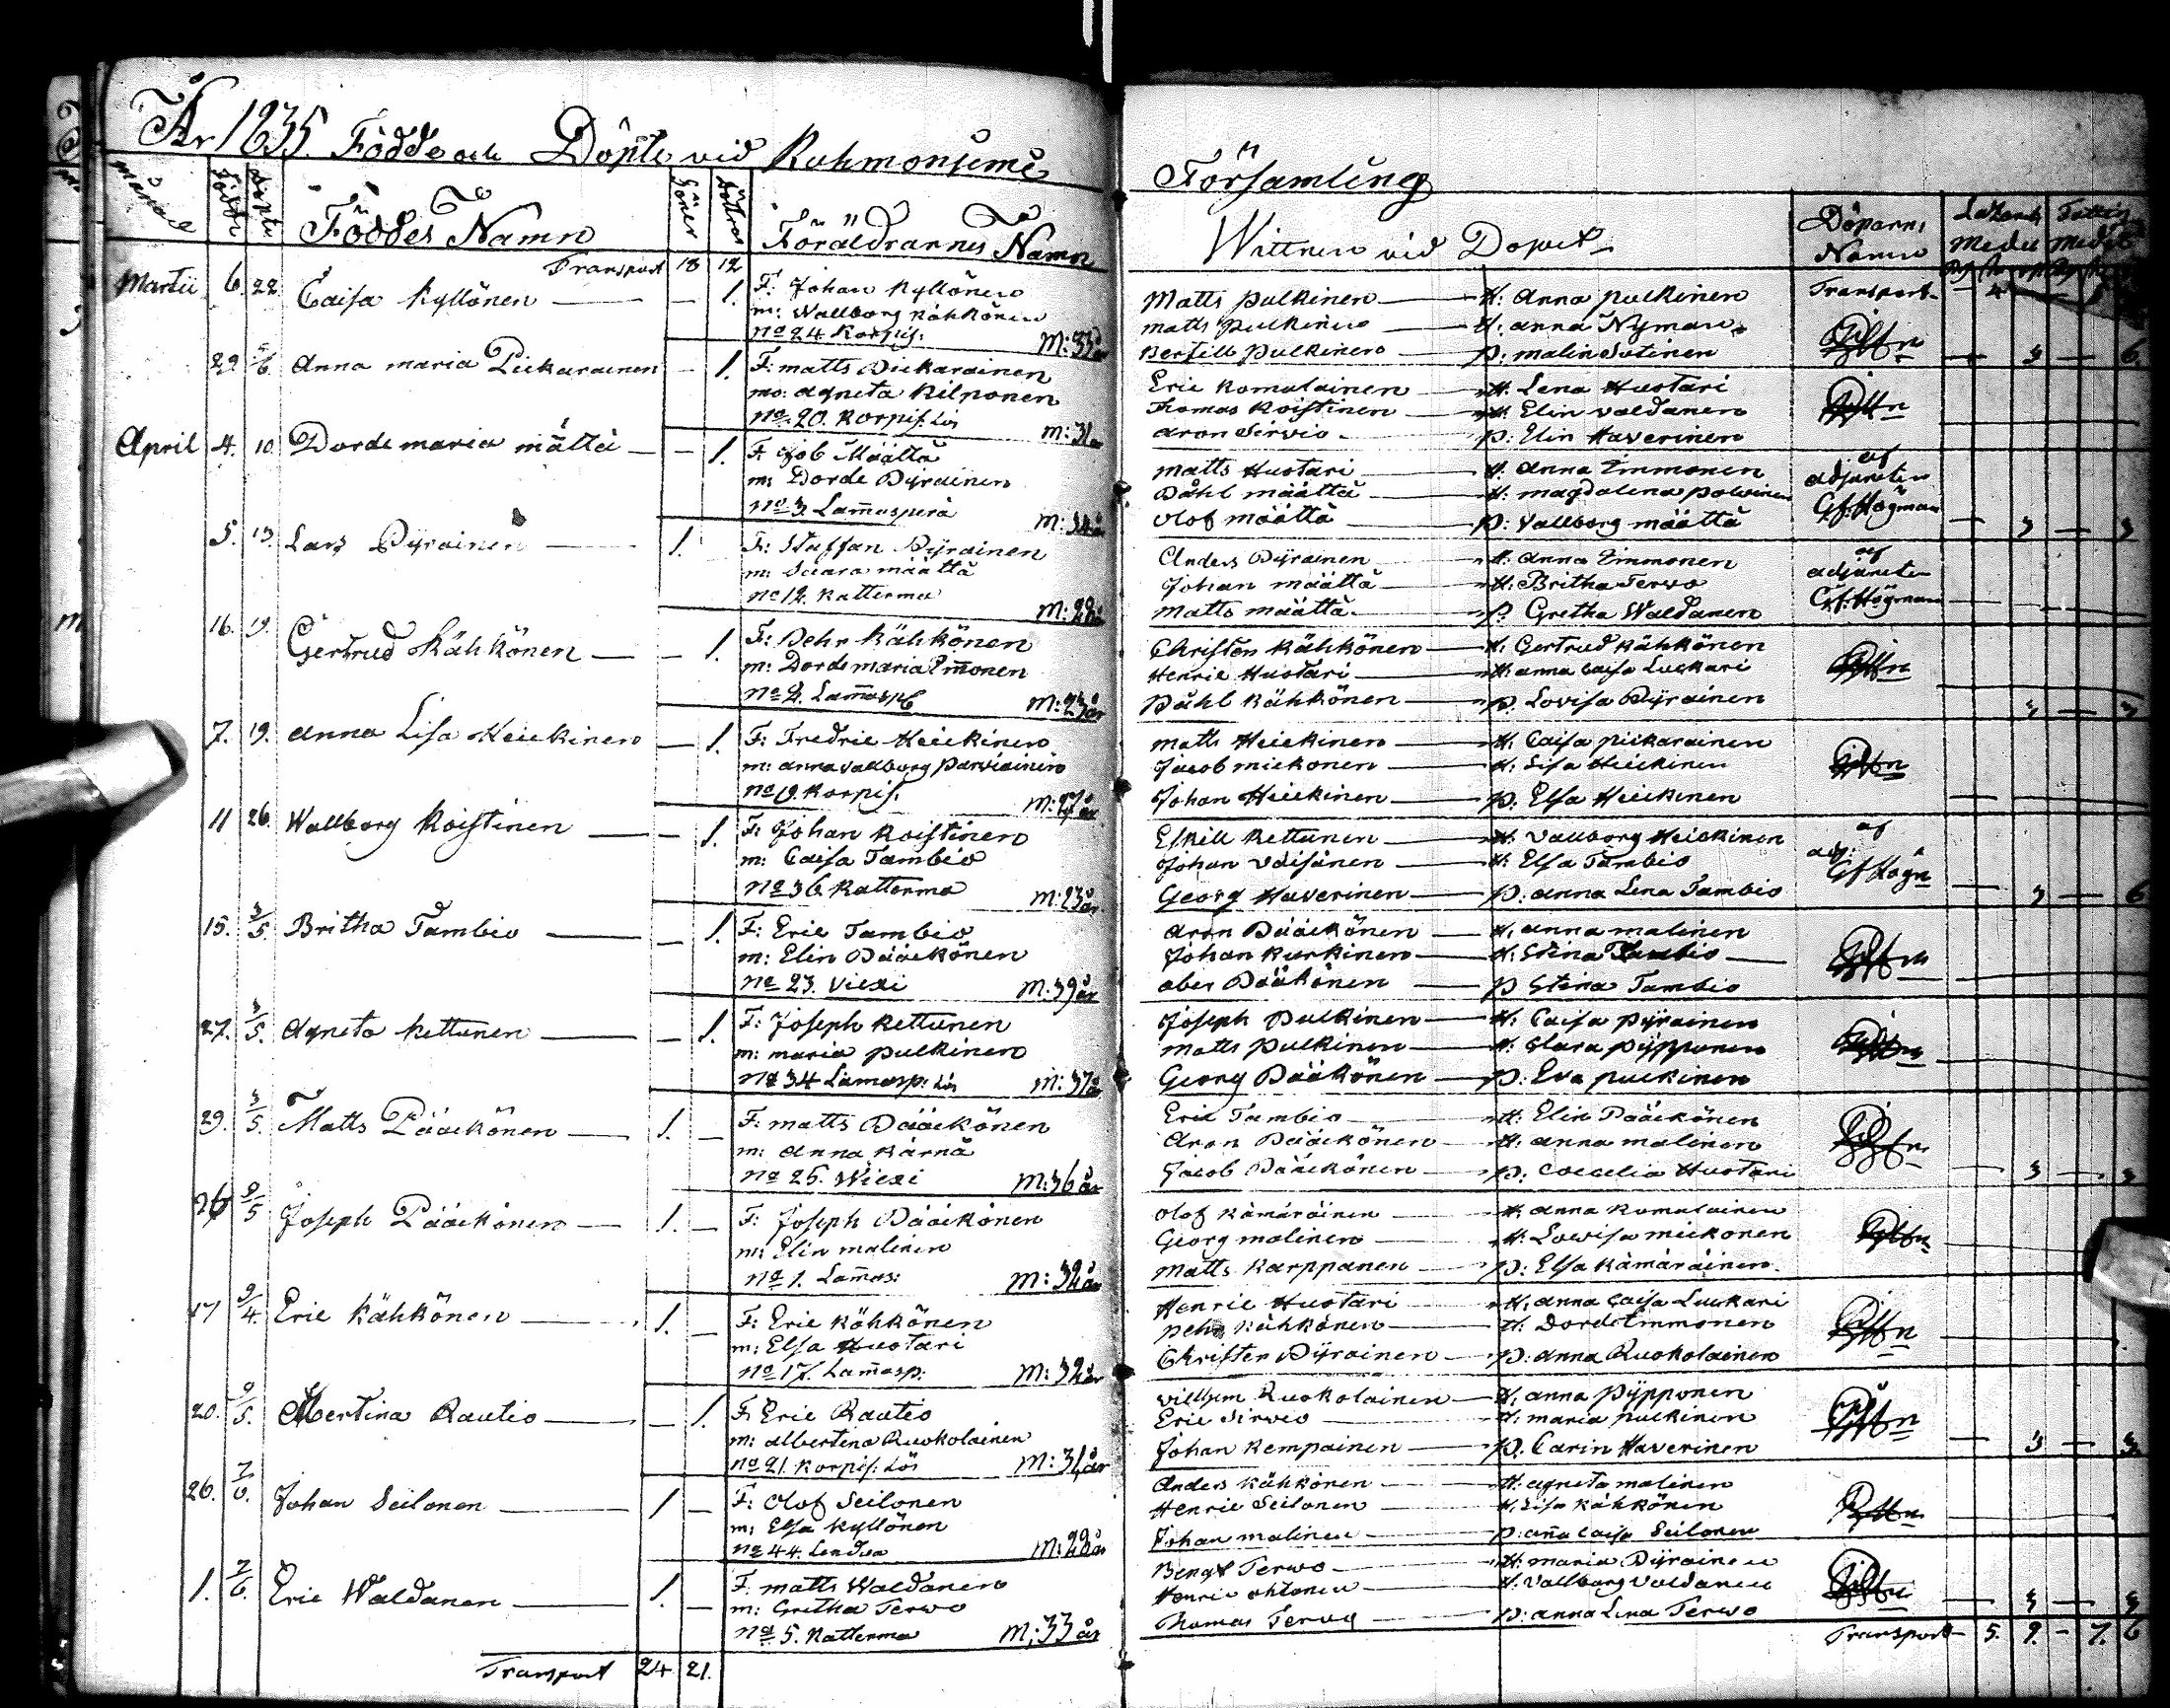 År 1835. Födde och Döpte vid Kuhmoniemi Församling
Månad Födde Döpte Föddes Namn Söner Döttrar Föräldrarnes Namn Wittnen vid Dopet Döparns Namn
Transport 18 12 Transport
Martii 6. 22. Caisa Kyllönen — 1. F: Johan Kyllönen Matts Pulkinen — H: Anna Pulkinen
m: Wallborg Kähkönen Matts Pulkinen — H: Anna Nyman
No 24 Korpis: M: 33 år Bertell Pulkinen — P: Malin Sutinen 3 — 6.
29. 5/6. Anna Maria Pickarainen — 1. F: Matts Pickarainen Eric Komulainen — H. Lena Huotari
mo: Agneta Kilponen Thomas Koistinen — H. Elin Waldanen
No 20. Korpis: Lös M: 31 år Aron Sirvio — P: Elin Haverinen
April 4. 10. Dorde Maria Mättä — 1. F. Job Määttä Matts Huotari — H. Anna Immonen af
m: Dorde Pyrainen Påhl Määttä — H: Magdalena Polvinen adjuncten
No 3 Lam̄asperä M: 34 år Olof Määttä — P: Vallborg Määttä G.f. Högman 3 — 3
5. 13. Lars Pyrainen — 1. F: Staffan Pyrainen Anders Pyrainen — H: Anna Immonen af
m: Saara Määttä Johan Määttä — H: Britha Terwo adjuncten
No 12. Katterma M: 28 år Matts Määttä — P. Gretha Waldanen G.f. Högman
16. 19. Gertrud Kähkönen — 1. F: Pehr Kähkönen Christen Kähkönen — H. Gertrud Kähkönen
m: Dorde Maria Im̄onen Henric Huotari — H: Anna Caisa Luckari
No 2. Lam̄asp M: 23 år Påhl Kähkönen — P. Lovisa Pyrainen 3 — 3
7. 19. Anna Lisa Heickinen — 1. F: Fredric Heickinen Matts Heickinen — H. Caisa Pickarainen
m: Anna Vallborg Parviainen Jacob Mickonen — H: Lisa Heickinen
No 19. Korpis. M: 27 år Johan Heickinen — P. Elsa Heickinen
11 26. Wallborg Koistinen — 1. F: Johan Koistinen Eskill Kettunen — H. Vallborg Heickinen af
m: Caisa Tambio Johan Väisänen — H: Elsa Tambio adj:
No 36 Katterma M: 23 år Georg Haverinen — P: Anna Lena Tambio G f Högn 3 — 6
15. 3/5. Britha Tambio — 1. F: Eric Tambio Aron Pääckönen — H. Anna Malinen
m: Elin Pääckönen Johan Kurkinen — H: Stina Tambio
No 23. Viexi M: 39 år Abes Pääkönen — P Stina Tambio
27. 3/5. Agneta Kettunen — 1. F: Joseph Kettunen Joseph Pulkinen — H. Caisa Pyrainen
m: Maria Pulkinen Matts Pulkinen — H: Clara Pypponen
No 34 Lamasp: Lös M: 37 år Georg Pääkönen — P: Eva Pulkinen
29. 3/5. Matts Pääckönen — 1. F: Matts Pääckönen Eric Tambio — H: Elin Pääckönen
m: Anna Kärnä Aron Pääckönen — H: Anna Malinen
No 25. Wiexi M: 36 år Jacob Pääckönen — P: Coecelia Huotari 3 — 3
26 9/5 Joseph Pääckönen — 1. F: Joseph Pääckönen Olof Kämäräinen — H: Anna Komulainen
m: Elin Malinen Georg Malinen — H. Lowisa Mickonen
No 1. Lam̄as: M: 32 år Matts Karppanen — P: Elsa Kämäräinen
17 9/4. Eric Kähkönen — 1. F: Eric Kähkönen Henric Huotari — H: Anna Caisa Luckari
m: Elsa Huotari Pehr Kähkönen — H: Dorde Immonen
No 17. Lam̄asp: M: 32 år Christen Pyrainen — P: Anna Ruokolainen
20. 9/5. Albertina Rautio — 1. F: Eric Rautio Villhem Ruokolainen — H. Anna Pypponen
m: Albertina Ruokolainen Eric Sirvio — H: Maria Pulkinen
No 21. Korpis: Lös M: 31 år Johan Kempainen — P. Carin Haverinen 3 — 3
26. 7/6. Johan Seilonen — 1 — F: Olof Seilonen Anders Kähkönen — H: Agneta Malinen
m: Elsa Kyllönen Henric Seilonen — H. Lisa Kähkönen
No 44. Lendua M: 28 år Johan Malinen — P: An̄a Caisa Seilonen
1. 7/6. Eric Waldanen — 1. F: Matts Waldanen Bengt Terwo — H: Maria Pyrainen
m: Gretha Terwo Henric Ohtonen — H: Vallborg Valdanen
No 5. Katterma M: 33 år Thomas Tervo — P: Anna Lena Terwo 3 — 3
Transport 24 21. Transport 5. 9. — 7. 6